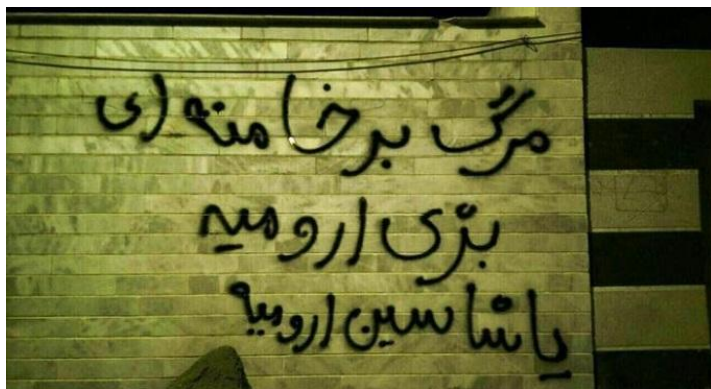 مرگ بر خامنه ای
بژی ارومیه
یاشاسین ارومیه